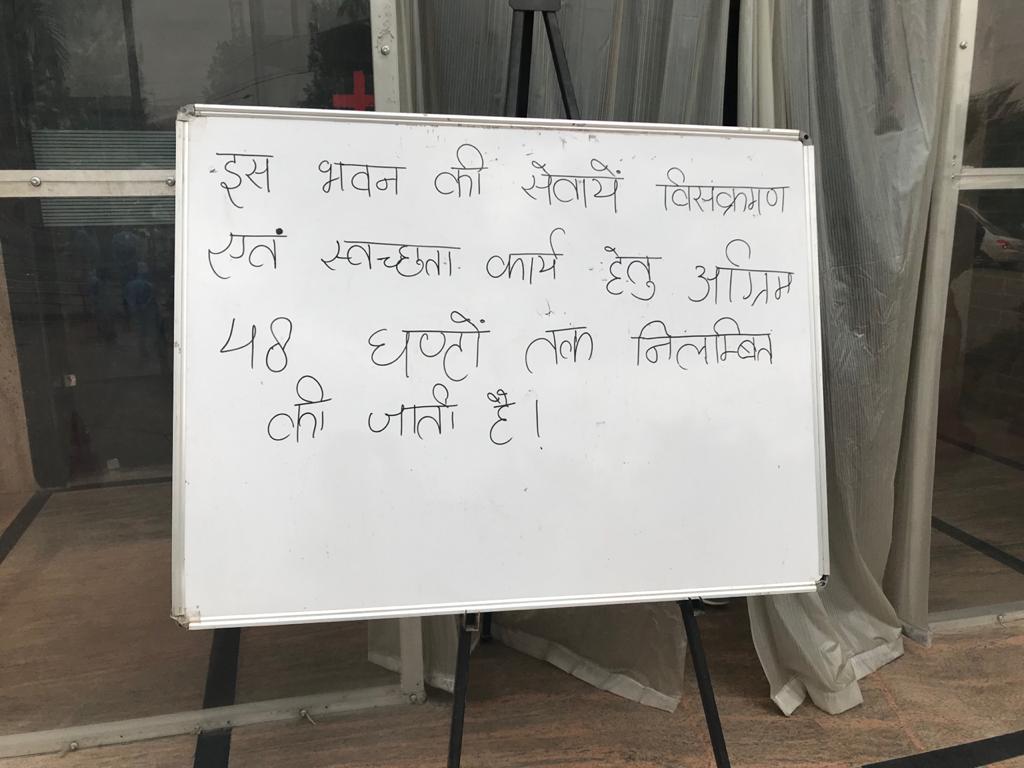 इस भवन की सेवायें विसंक्रमण
एवं स्वच्छता कार्य हेतु अग्रिम
48 घण्टों तक निलम्बित
की जाती है।